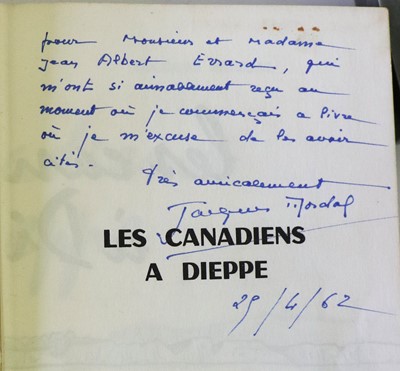 pour Monsieur et Madame
Jean Albert Evrard, qui
m'ont si aimablement reçu au
moment où je commençais ce livre
où je m'excuse de les avoir
cités.
Très amicalement
Jacques Mordal
LES CANADIENS
A DIEPPE
29/4/62